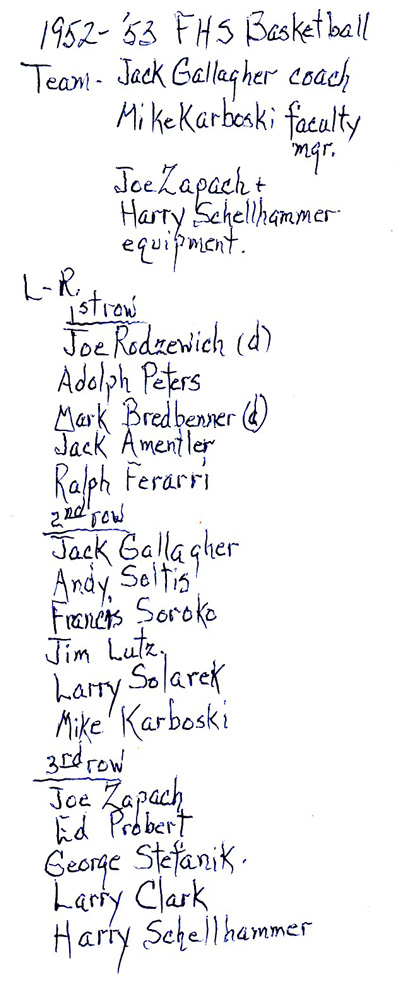 1952-'53 FHS Basketball
Team- Jack Gallagher coach
Mike Karboski faculty
mgr.
Joe Zapach +
Harry Schellhammer
equipment.
L-R.
1st row
Joe Rodzewich (d)
Adolph Peters
Mark Bredbenner (d)
Jack Amentler
Ralph Ferarri
2nd row
Jack Gallagher
Andy Soltis
Francis Soroko
Jim Lutz.
Larry Solarek
Mike Karboski
3rd row
Joe Zapach
Ed Probert
George Stefanik.
Larry Clark
Harry Schellhammer